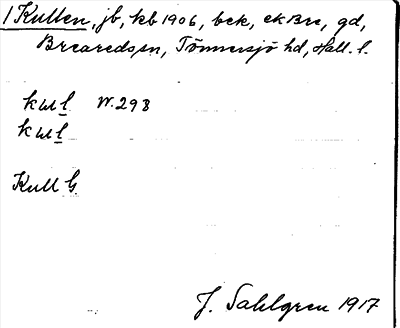 1 Kullen, jb, kb 1906, bek, ek Bre, gd,
Breareds sn, Tönnersjö hd, Hall. l.
kul̲l̲ N. 293
kul̲l̲
Kull G.
J. Sahlgren 1917